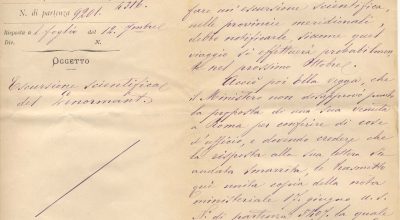 4316.
N. di partenza 9201.
Risposta al foglio del 12. 7mbre
Div. N.
OGGETTO
Escursione Scientifica
del Lenormant.
fare un'escursione scientifica,
nelle provincie meridionali,
debbo notificarle siccome quel
viaggio si effettuerà probabilmente
nel prossimo Ottobre.
Acciò poi Ella vegga, che
il Ministero non disapprovò punto
la proposta di una sua venuta
a Roma per conferire di cose
d'ufficio, e dovendo credere che
la risposta alla sua lettera sia
andata smarrita, le trasmetto
qui unita copia della nota
ministeriale 17. giugno u. s.
N. di partenza 5407. la quale